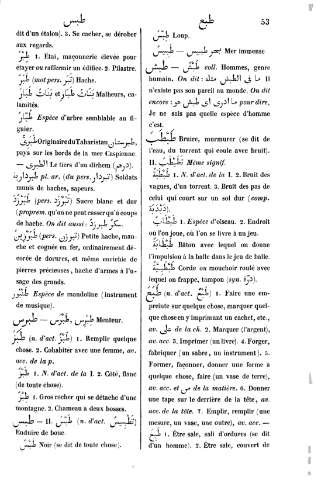 طبس
طبع
53
dit d'un étalon). 3. Se cacher, se dérober
aux regards.
1. Etai, maçonnerie élevée pour
étayer ou raffermir un édifice. 2. Pilastre.
طَبَر (mot pers. تبر) Hache.
بنات طبار et طبار Malheurs, ca-
lamités.
Espèce d'arbre semblable au fi-
guier.
طبرى Originaire du Tabaristan طبرستان
pays sur les bords de la mer Caspienne.
— الطبرى Le tiers d'un dirhem (درهم).
طبردارية pl. ar. (du pers. تبردار) Soldats
munis de haches, sapeurs.
طبرزد (pers. تبرزد) Sucre blanc et dur
(proprem. qu'on ne peut casser qu'à coups
de hache. On dit aussi : سكر طبرزد
طبرزين (pers. تبرزين) Petite hache, man-
che et cognée en fer, ordinairement dé-
corée de dorures, et même enrichie de
pierres précieuses, hache d'armes à l'u-
sage des grands.
طنبور Espèce de mandoline (instrument
de musique).
Menteur.
(n. d'act. طبز) 1. Remplir quelque
chose. 2. Cohabiter avec une femme, av.
acc. de la p.
طبز 1. N. d'act. de la I. 2. Côté, flanc
(de toute chose).
طبز 1. Gros rocher qui se détache d'une
montagne. 2. Chameau à deux bosses.
طبس — II. طبّس (n. d'act. تطبيس)
Enduire de boue.
طبس Noir (se dit de toute chose).
طبس Loup.
طبيس — بحر طبيس Mer immense
طبش — طبش coll. Hommes, genre
humain. On dit : ما فى الطبش مثله Il
n'existe pas son pareil au monde. On dit
encore : ما ادرى اى طبش هو pour dire,
Je ne sais pas quelle espèce d'homme
c'est.
طبطب Bruire, murmurer (se dit de
l'eau, du torrent qui coule avec bruit).
II. تطبطب Même signif.
طبطبة 1. N. d'act. de la I. 2. Bruit des
vagues, d'un torrent. 3. Bruit des pas de
celui qui court sur un sol dur (comp.
1. Espèce d'oiseau. 2. Endroit
où l'on joue, où l'on se livre à un jeu.
Bâton avec lequel on donne
l'impulsion à la balle dans le jeu de balle.
Corde ou mouchoir roulé avec
lequel on frappe, tampon (syn. درة).
طبع (n. d'act. طبع) 1. Faire une em-
preinte sur quelque chose, marquer quel-
que chose en y imprimant un cachet, etc.,
av. على de la ch. 2. Marquer (l'argent),
av. acc. 3. Imprimer (un livre). 4. Forger,
fabriquer (un sabre, un instrument). 5.
Former, façonner, donner une forme à
quelque chose, faire (un vase de terre),
av. acc. et من de la matière. 6. Donner
une tape sur le derrière de la tête, av.
acc. de la tête. 7. Emplir, remplir (une
mesure, un vase, une outre), av. acc. —
طبع 1. Être sale, sali d'ordures (se dit
d'un homme). 2. Être sale, couvert de